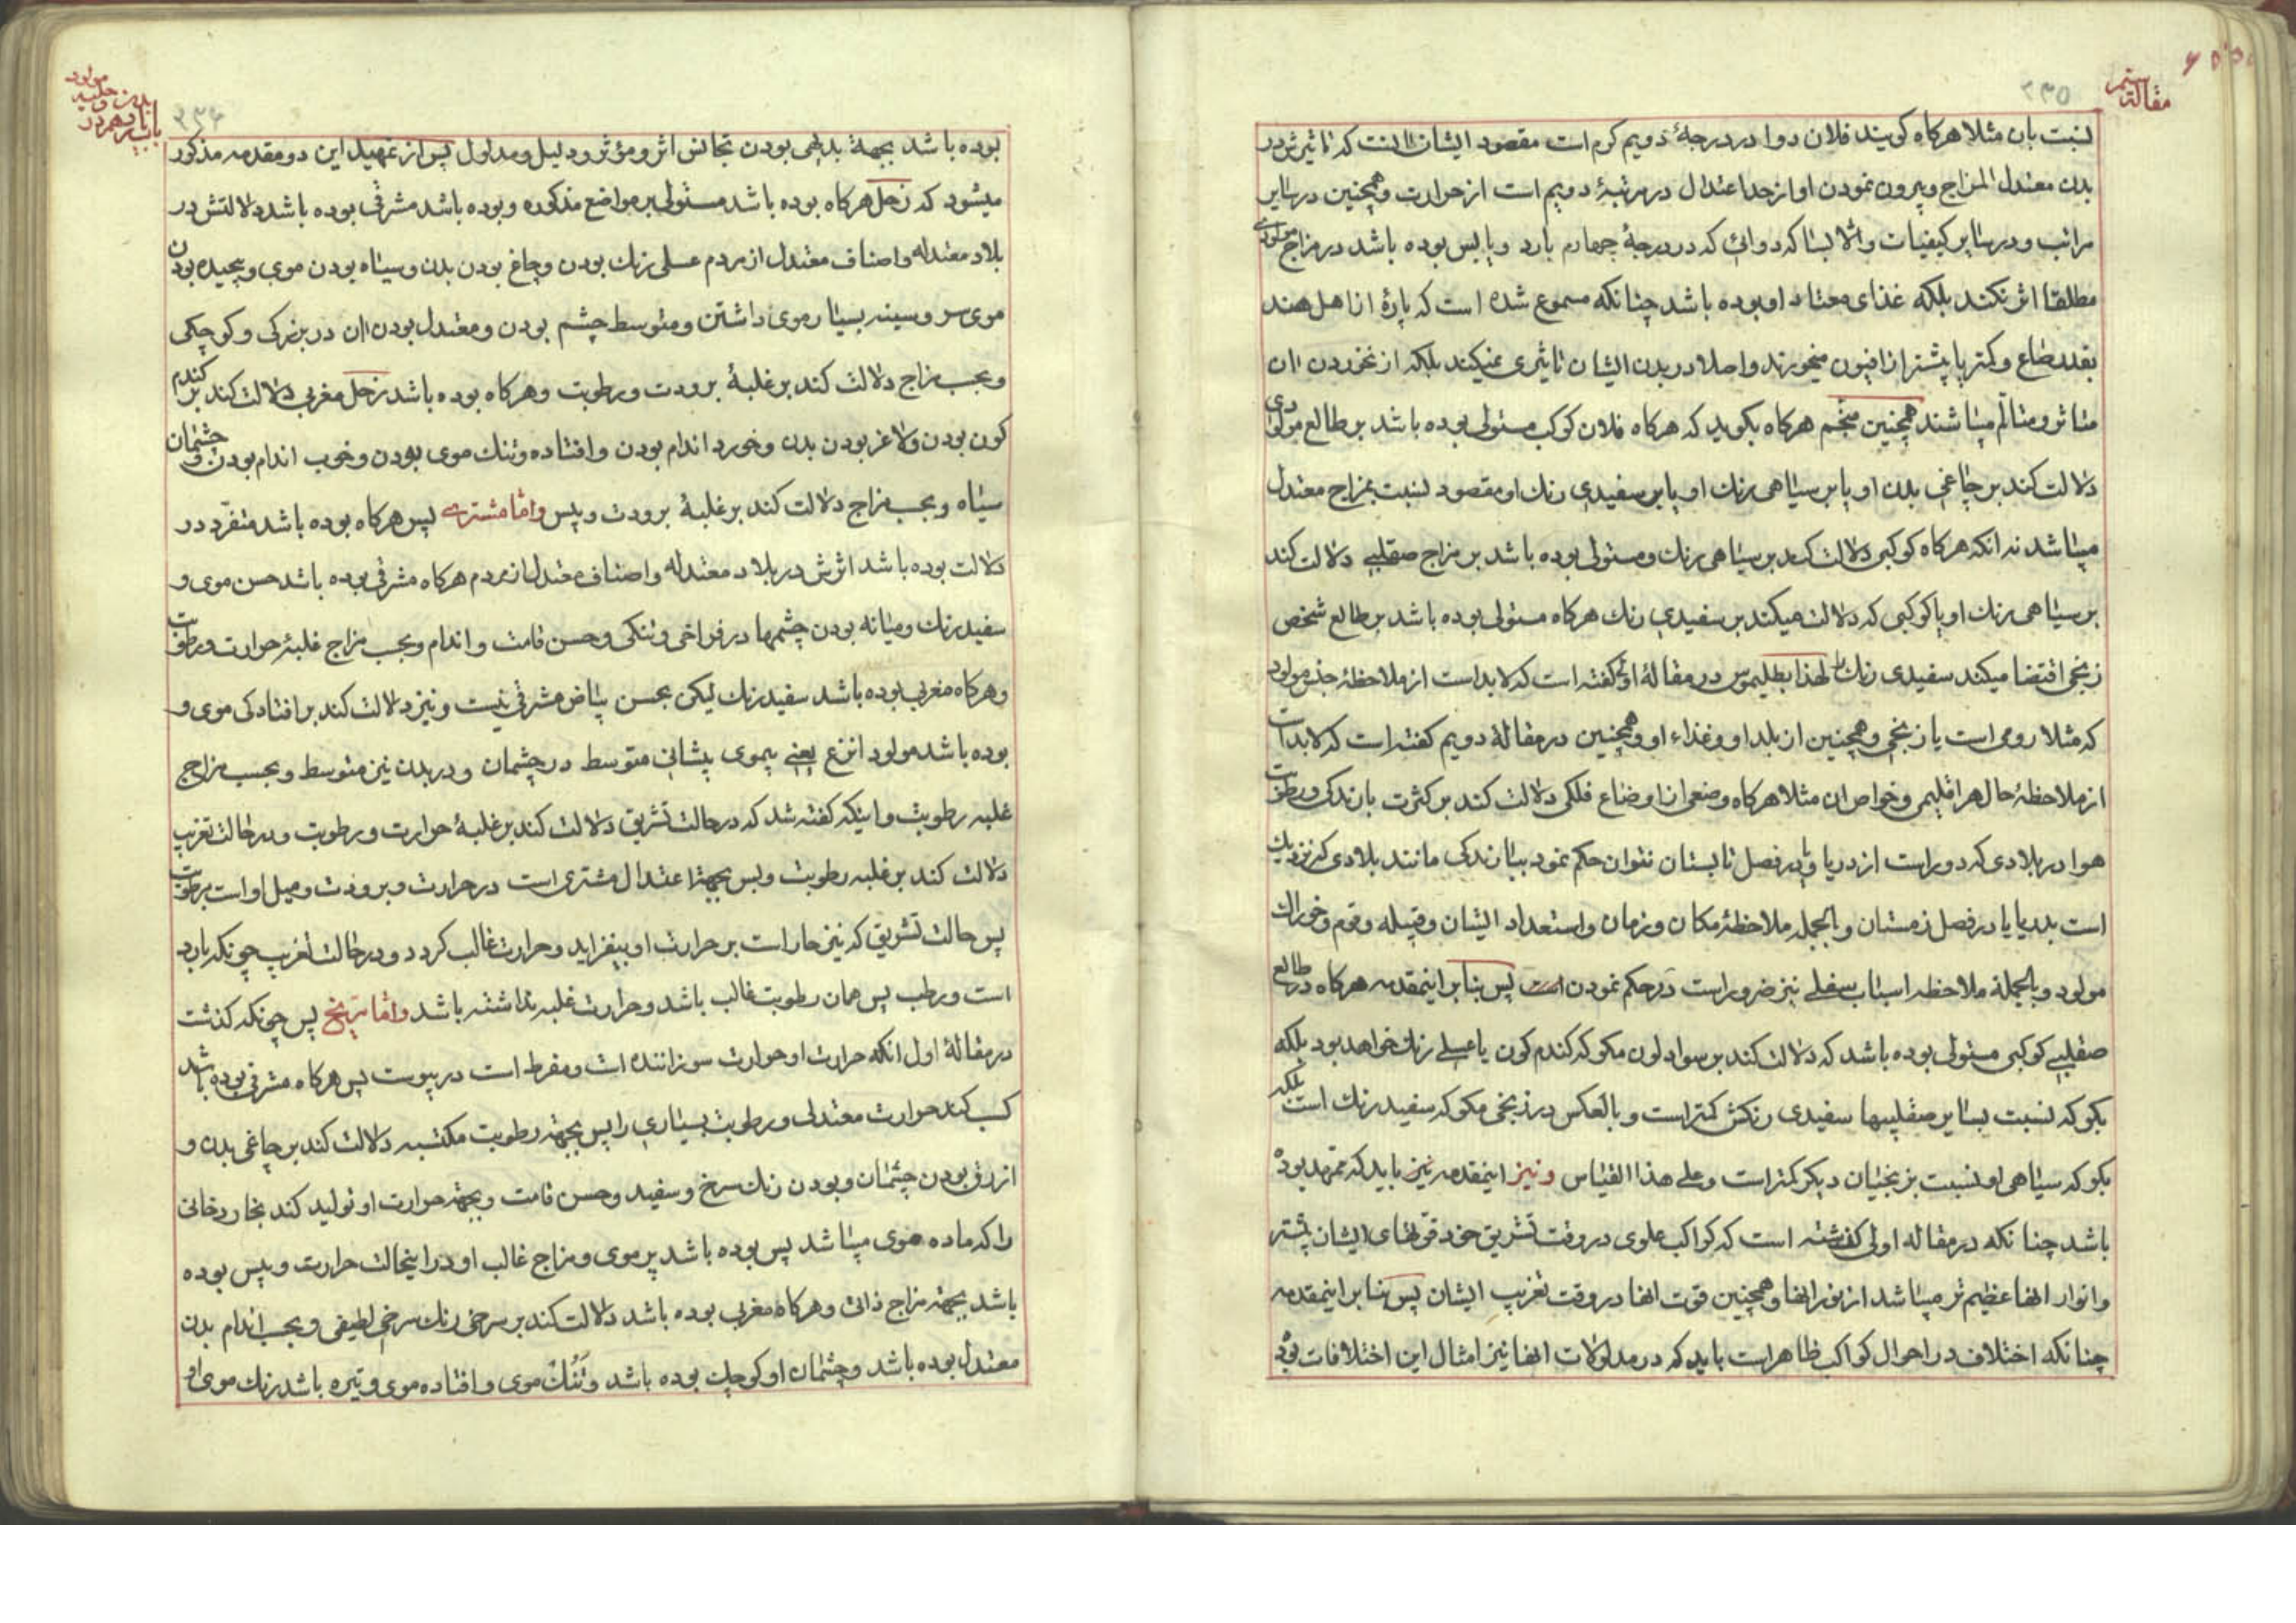 مقالة سیم
۲۳۵
نسبت بان مثلا هرکاه کویند فلان دوا در درجهٔ دویم کرم است مقصود ایشان انست که تاثیرش در
بدن معتدل المزاج و بیرون نمودن او از حد اعتدال در مرتبهٔ دویم است از حرارت و همچنین در سایر
مراتب و در سایر کیفیات و الا بسا که دوائی که در درجهٔ چهارم بارد و یابس بوده باشد در مزاج مولودی
مطلقا اثر نکند بلکه غذای معتاد او بوده باشد چنانکه مسموع شده است که پارهٔ از اهل هند
بقدر صاع و کمتر یا بیشتر از افیون میخورند و اصلا در بدن ایشان تاثیری نمیکند بلکه از نخوردن ان
متاثر و متالم میباشند همچنین منجم هرکاه بکوید که هرکاه فلان کوکب مستولی بوده باشد بر طالع مولودی
دلالت کند بر چاغی بدن او یا بر سیاهی رنك او یا بر سفیدی رنك او مقصود نسبت بمزاج معتدل
میباشد نه انکه هرکاه کوکبی دلالت کند بر سیاهی رنك و مستولی بوده باشد بر مزاج صقلبی دلالت کند
بر سیاهی رنك او یا کوکبی که دلالت میکند بر سفیدی رنك هرکاه مستولی بوده باشد بر طالع شخص
زنجی اقتضا میکند سفیدی رنك را لهذا بطلیموس در مقالهٔ اولی کفته است که لابد است از ملاحظهٔ جنس مولود
که مثلا رومی است یا زنجی و همچنین از بلد او و غذاء او و همچنین در مقالهٔ دویم کفته است که لابد است
از ملاحظهٔ حال هر اقلیمی و خواص ان مثلا هرکاه وضعی از اوضاع فلکی دلالت کند بر کثرت بارندکی و رطوبت
هوا در بلادی که دور است از دریا و یا در فصل تابستان نتوان حکم نمود ببارندکی مانند بلادی که نزدیك
است بدریا یا در فصل زمستان و بالجمله ملاحظهٔ مکان و زمان و استعداد ایشان و قبیله و قوم و خوراك
مولود و بالجملة ملاحظه اسباب سفلی نیز ضرور است در حکم نمودن پس بنا بر اینمقدمه هرکاه در طالع
صقلبی کوکبی مستولی بوده باشد که دلالت کند بر سواد لون مکو که کندم کون یا عسلی رنك خواهد بود بلکه
بکو که نسبت بسایر صقلبیها سفیدی رنکش کمتر است و بالعکس در زنجی مکو که سفید رنك است بلکه
بکو که سیاهی او نسبت بزنجیان دیکر کمتر است و علی هذا القیاس و نیز اینمقدمه نیز باید که ممهد بوده
باشد چنانکه در مقاله اولی کفته شده است که کواکب علوی در وقت تشریق خود قوتهای ایشان بیشتر
و انوار انها عظیم تر میباشد از نور انها و همچنین قوت انها در وقت تغریب ایشان پس بنا بر اینمقدمه
چنانکه اختلاف در احوال کواکب ظاهر است باید که در مدلولات انها نیز امثال این اختلافات بوده
۲۳۶
بوده باشد بجههٔ بدیهی بودن تجانس اثر و مؤثر و دلیل و مدلول پس از تمهید این دو مقدمه مذکور
میشود که زحل هرکاه بوده باشد مستولی بر مواضع مذکوره و بوده باشد مشرقی بوده باشد دلالتش در
بلاد معتدله و اصناف معتدل از مردم عسلی رنك بودن و چاغ بودن بدن و سیاه بودن موی و پیچیده بودن
موی سر و سینه بسیار موی داشتن و متوسط چشم بودن و معتدل بودن ان در بزرکی و کوچکی
و بحسب مزاج دلالت کند بر غلبهٔ برودت و رطوبت و هرکاه بوده باشد زحل مغربی دلالت کند بر کندم
کون بودن و لاغر بودن بدن و خورد اندام بودن و افتاده و تنك موی بودن و خوب اندام بودن و چشمان
سیاه و بحسب مزاج دلالت کند بر غلبهٔ برودت و یبس و اما مشتری پس هرکاه بوده باشد متفرد در
دلالت بوده باشد اثرش در بلاد معتدله و اصناف معتدل از مردم هرکاه مشرقی بوده باشد حسن موی و
سفید رنك و میانه بودن چشمها در فراخی و تنکی و حسن قامت و اندام و بحسب مزاج غلبهٔ حرارت و رطوبت
و هرکاه مغربی بوده باشد سفید رنك لیکن بحسن بیاض مشرقی نیست و نیز دلالت کند بر افتادکی موی و
بوده باشد مولود انزع یعنی بیموی پیشانی متوسط در چشمان و در بدن نیز متوسط و بحسب مزاج
غلبه رطوبت و اینکه کفته شد که در حالت تشریق دلالت کند بر غلبهٔ حرارت و رطوبت و در حالت تغریب
دلالت کند بر غلبه رطوبت و بس بجهة اعتدال مشتری است در حرارت و برودت و میل او است برطوبت
پس حالت تشریق که نیز حار است بر حرارت او بیفزاید و حرارت غالب کردد و در حالت تغریب چونکه بارد
است و رطب پس همان رطوبت غالب باشد و حرارت غلبه نداشته باشد و اما مریخ پس چونکه کذشت
در مقالهٔ اول انکه حرارت او حرارت سوزاننده است و مفرط است در یبوست پس هرکاه مشرقی بوده باشد
کسب کند حرارت معتدلی و رطوبت بسیاری را پس بجهة رطوبت مکتسبه دلالت کند بر چاغی بدن و
ازرق بودن چشمان و بودن رنك سرخ و سفید و حسن قامت و بجهة حرارت او تولید کند بخار دخانی
را که ماده موی میباشد پس بوده باشد پر موی و مزاج غالب او در اینحالت حرارت و یبس بوده
باشد بجهة مزاج ذاتی و هرکاه مغربی بوده باشد دلالت کند بر سرخی رنك سرخی لطیفی و بحسب اندام بدن
معتدل بوده باشد و چشمان او کوچك بوده باشد و تنك موی و افتاده موی و تیره باشد رنك موی او